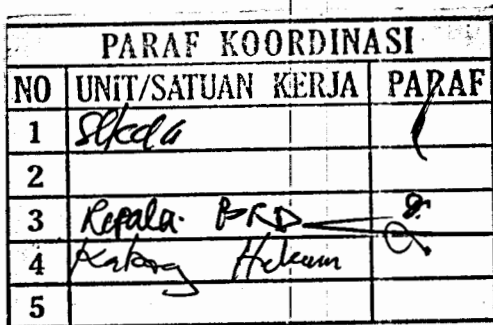 PARAF KOORDINASI
NO UNIT/SATUAN KERJA PARAF
1 Sekda
2
3 Kepala BKD
4 Kabag Hukum
5